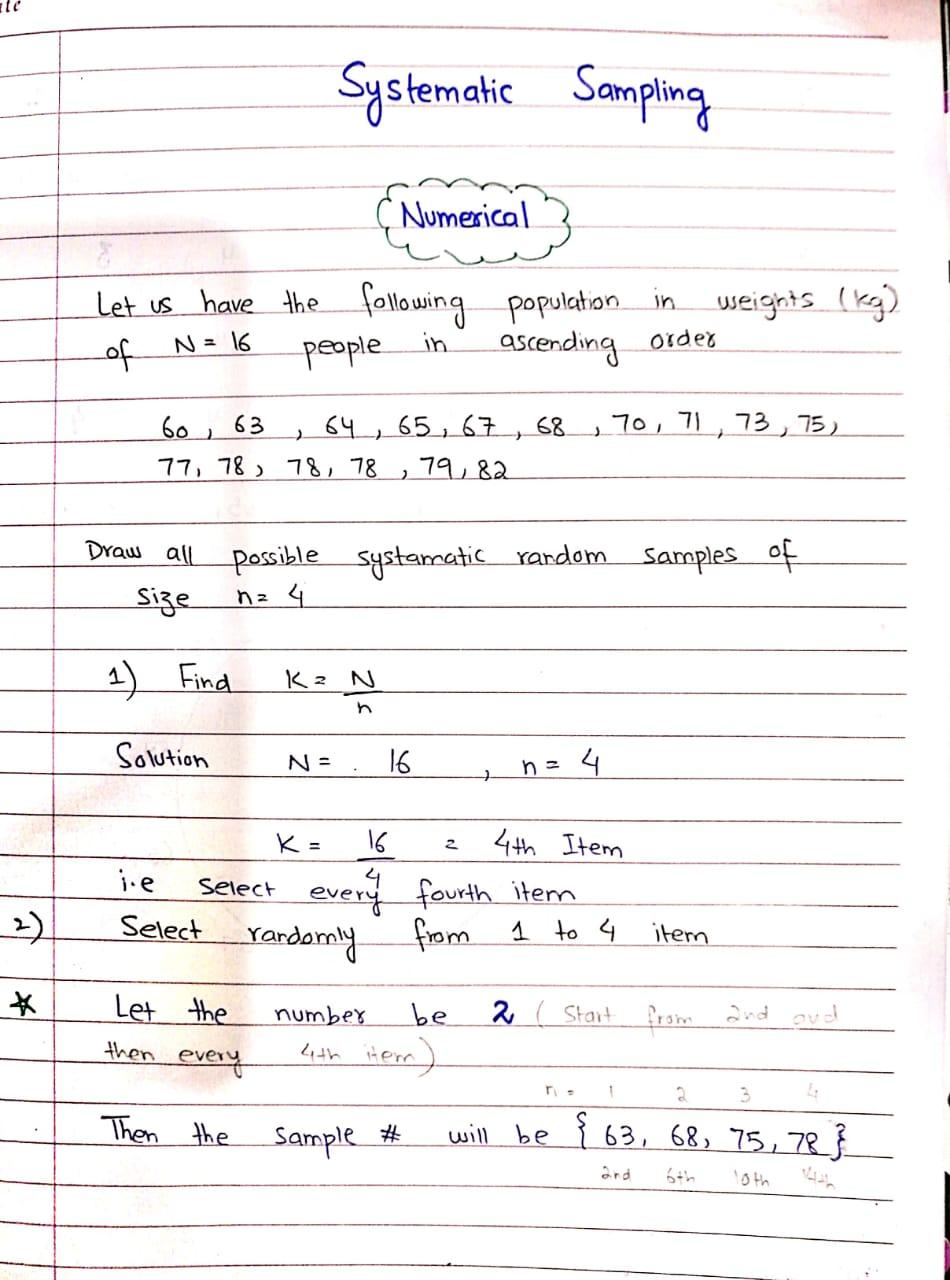 Systematic Sampling
Numerical
Let us have the following population in weights (kg)
of N = 16 people in ascending order
60, 63, 64, 65, 67, 68, 70, 71, 73, 75,
77, 78, 78, 78, 79, 82
Draw all possible systamatic random samples of
size n = 4
1) Find K = N
n
Solution N = . 16 , n = 4
K = 16 = 4th Item
4
i.e select every fourth item
2) Select randomly from 1 to 4 item
* Let the number be 2 ( Start from 2nd and
then every 4th item)
n = 1 2 3 4
Then the sample # will be { 63, 68, 75, 78 }
2nd 6th 10th 14th